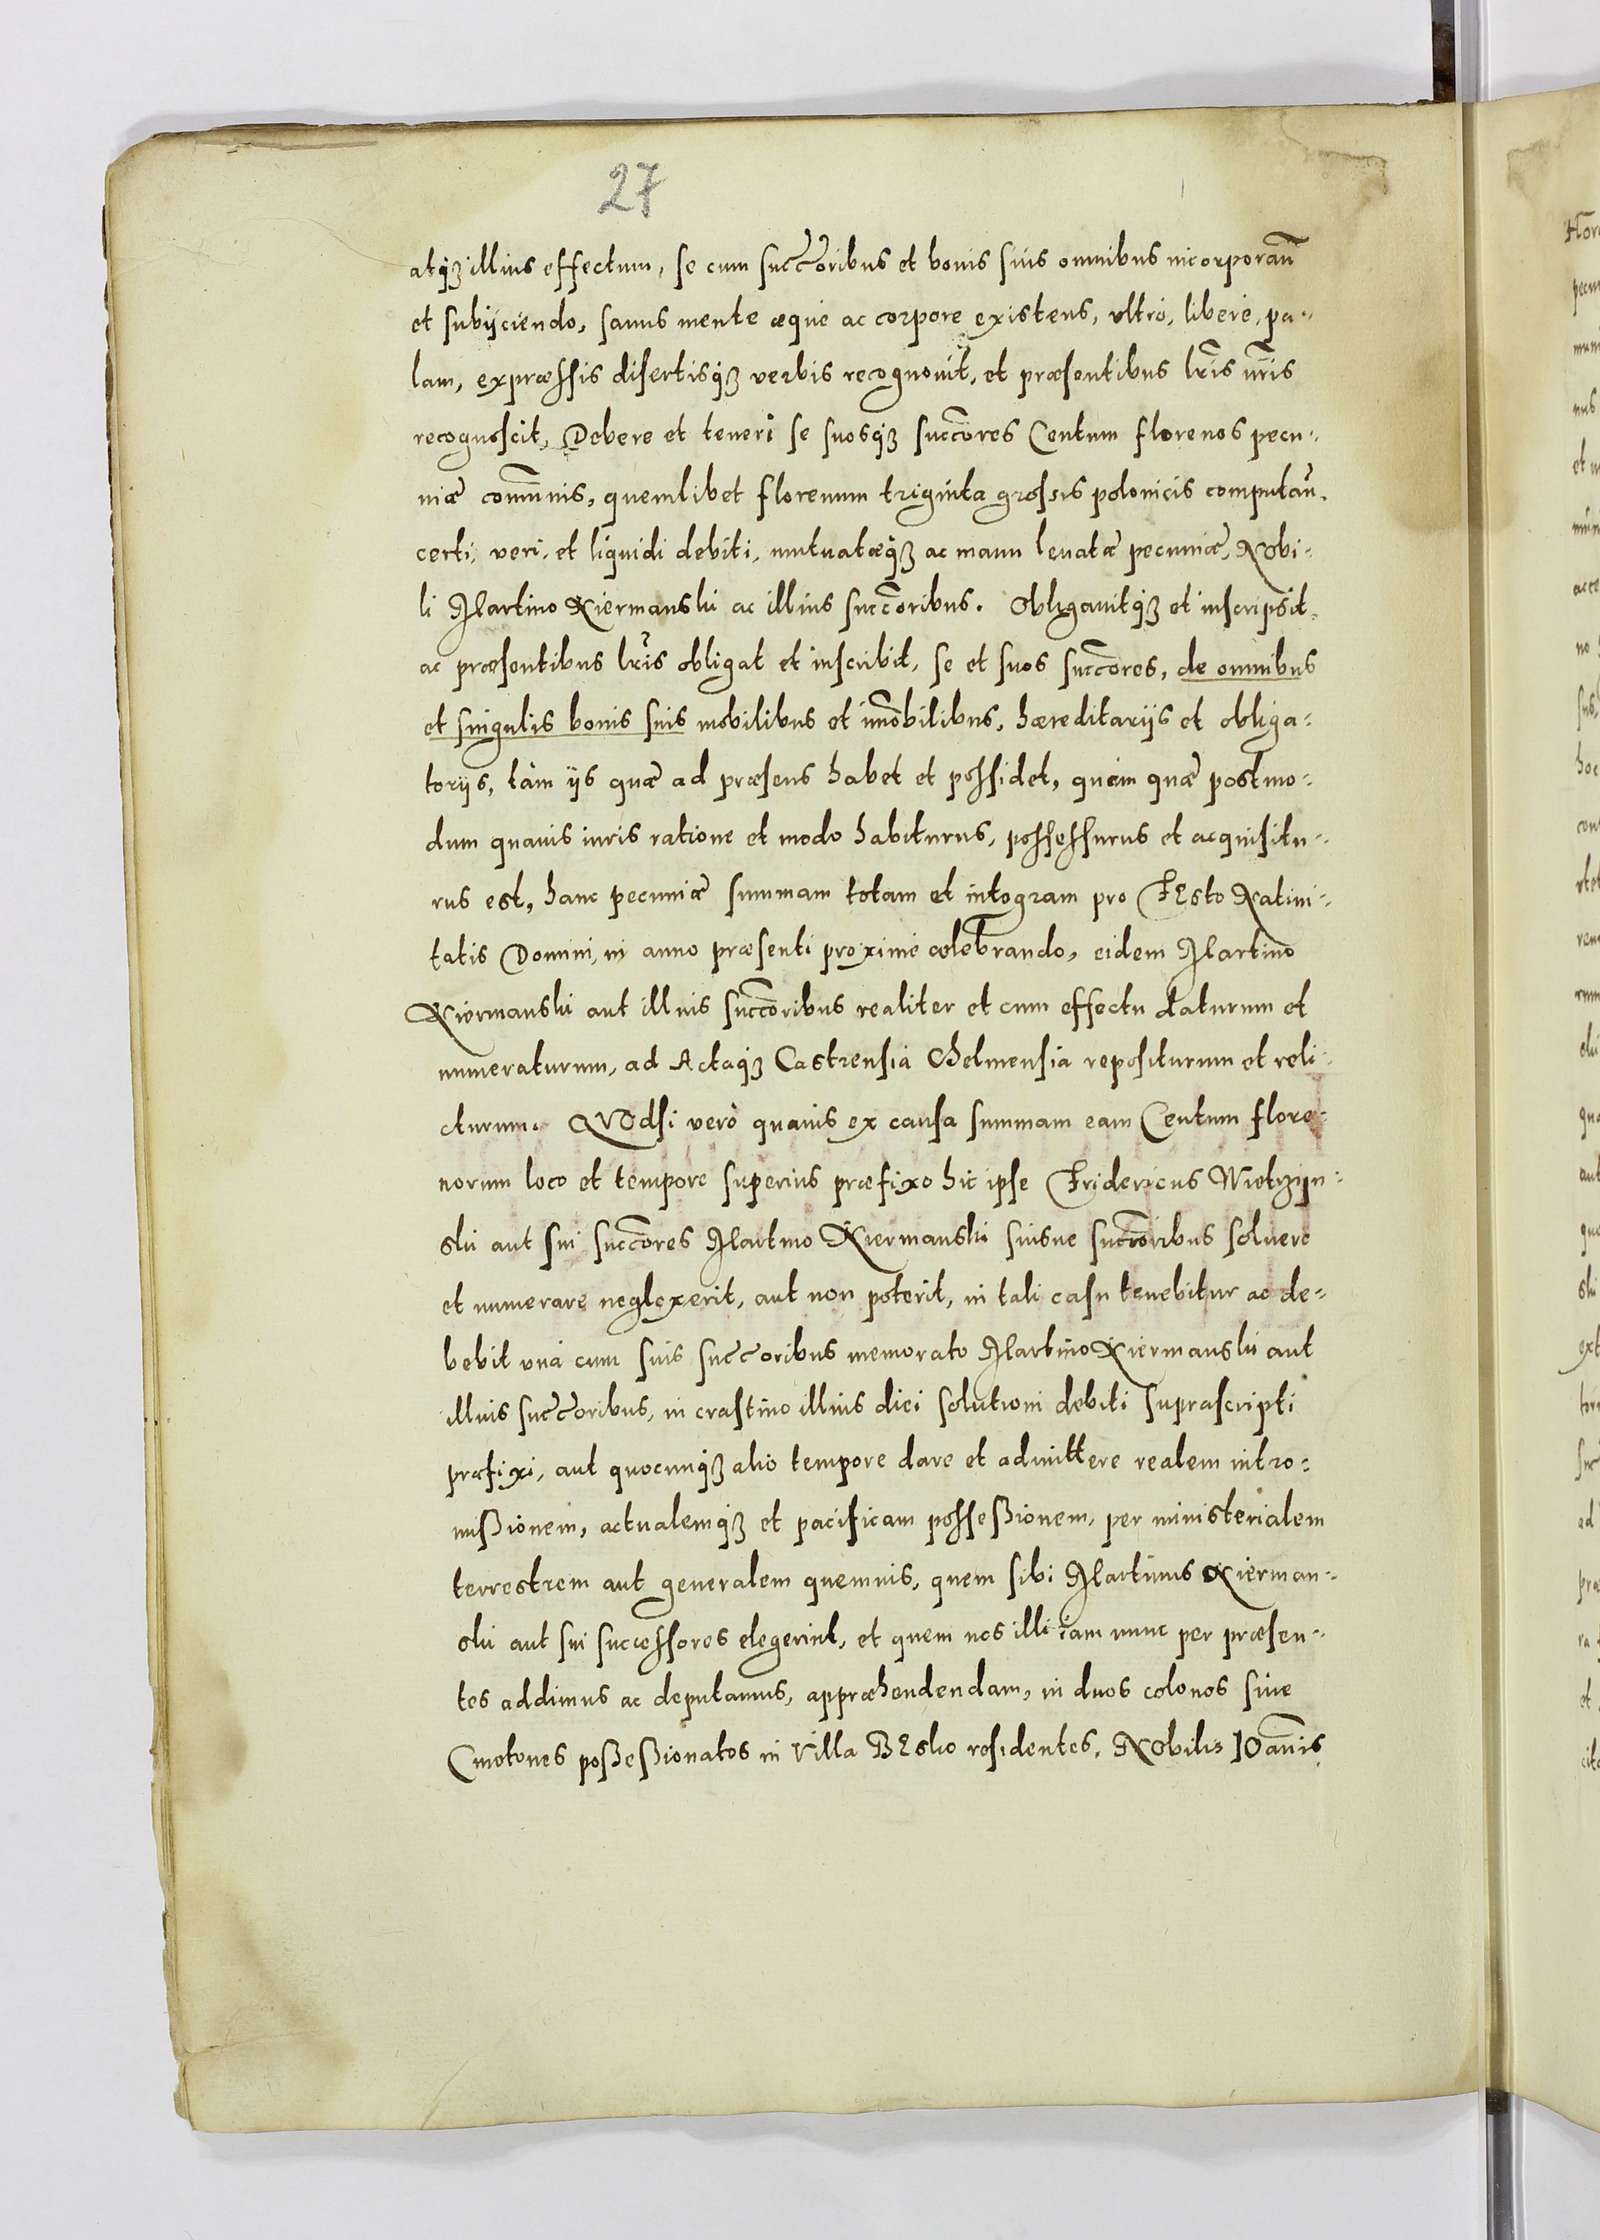 27
atqꝫ illius effectum, se cum succ͠oribus et bonis suis omnibus incorporan͠
et subijciendo, sanus mente æque ac corpore existens, vltrò, liberè, pa-
lam, expræssis disertisqꝫ verbis recognouit, et præsentibus lr͠is nr͠is
recognoscit, Debere et teneri se suosqꝫ succ͠ores Centum florenos pecu-
niæ com͠unis, quemlibet florenum triginta grossis polonicis computan͠.
certi, veri, et liquidi debiti, mutuatæqꝫ ac manu leuatæ pecuniæ, Nobi-
li Martino Niermanski ac illius succ͠oribus. Obligauitqꝫ et inscripsit,
ac præsentibus lr͠is obligat et inscribit, se et suos succ͠ores, de omnibus
et singulis bonis suis mobilibus et im͠obilibus, hæreditarijs et obliga-
torijs, tàm ijs quæ ad præsens habet et possidet, quàm quæ postmo-
dum quauis iuris ratione et modo habiturus, possessurus et acquisitu-
rus est, hanc pecuniæ summam totam et integram pro Festo Natiui-
tatis Domini, in anno præsenti proximè celebrando, eidem Martino
Niermanski aut illius succ͠oribus realiter et cum effectu daturum et
numeraturum, ad Actaqꝫ Castrensia Chelmensia repositurum et reli-
cturum. QVOdsi verò quauis ex causa summam eam Centum flore-
norum loco et tempore superius præfixo hic ipse Fridericus Wietrzyn-
ski aut sui succ͠ores Martino Niermanski suisue succ͠oribus soluere
et numerare neglexerit, aut non poterit, in tali casu tenebitur ac de-
bebit vnà cum suis succ͠oribus memorato Martino Niermanski aut
illius succ͠oribus, in crastino illius diei solutioni debiti suprascripti
præfixi, aut quocunqꝫ alio tempore dare et admittere realem intro-
mißionem, actualemqꝫ et pacificam posseßionem, per ministerialem
terrestrem aut generalem quemuis, quem sibi Martinus Nierman-
ski aut sui successores elegerint, et quem nos illi iam nunc per præsen-
tes addimus ac deputamus, appræhendendam, in duos colonos siue
Cmetones poßeßionatos in Villa BEsko residentes. Nobilis IOan͠is